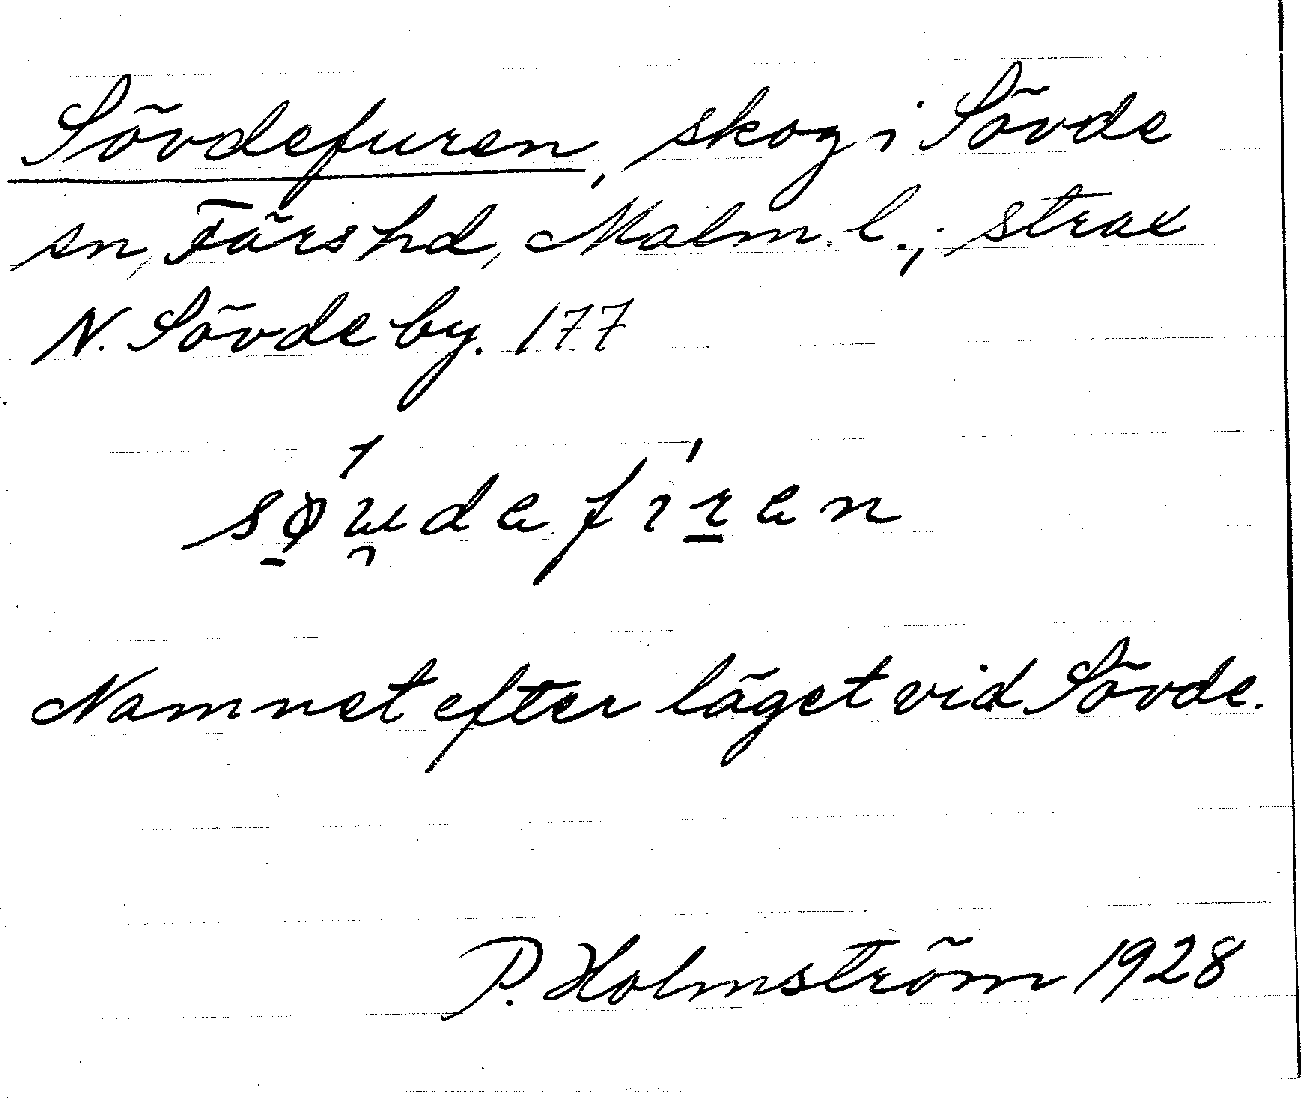 Sövdefuren, skog i Sövde
sn, Färs hd, Malm. l.; strax
N. Sövde by. 177
sǿ̠u̯defı̍r̠en
Namnet efter läget vid Sövde.
P. Holmström 1928